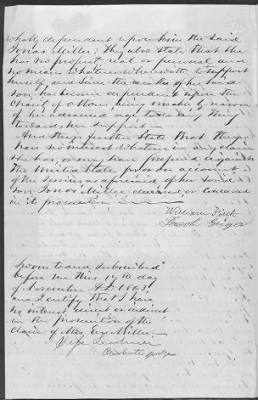 wholly dependent upon him the said
Jonas Miller; They also State that She
has no property real or personal and
no means whatever wherewith to support
herself and Since the death of her Said
Son has become dependent upon the
Charity of others, being unable by reason
of her advanced age to do any thing
toward her Support
And they further State that they
have no interest whatever in any claim
She has, or may have preferred against
the United States, for or on account
of the Services aforesaid of the Said
Son Jonas Miller, deceased, or concerned
in its prosecution
William Fink
Jacob Geiger
Sworn to and Subscribed
before me this 19th day
of November A.D. 1863
and I certify that I have
no interest direct or indirect
in the prosecution of the
claim of Mrs Eve Miller
Probate Judge